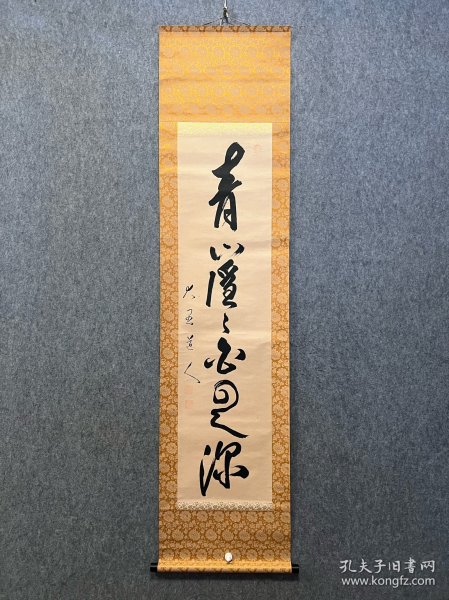 青山隱々白雲深
道人
孔夫子旧书网
www.kongfz.com